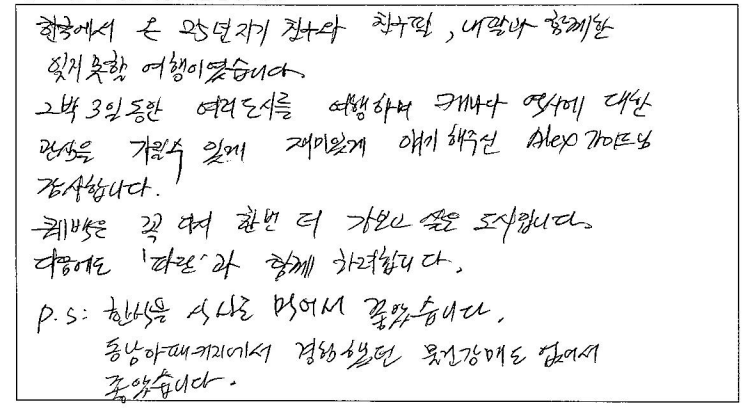 한국에서 온 25년지기 친구와 친구딸, 내딸과 함께한
잊지못할 여행이었습니다.
2박 3일동안 여러도시를 여행하며 캐나다 역사에 대한
관심을 가질수 있게 재미있게 얘기해주신 Alex 가이드님
감사합니다.
퀘백은 꼭 다시 한번 더 가보고 싶은 도시입니다.
다음에도 '파란'과 함께 하려합니다.
P.S: 한식을 식사로 먹어서 좋았습니다.
동남아패키지에서 경험했던 물건강매도 없어서
좋았습니다.